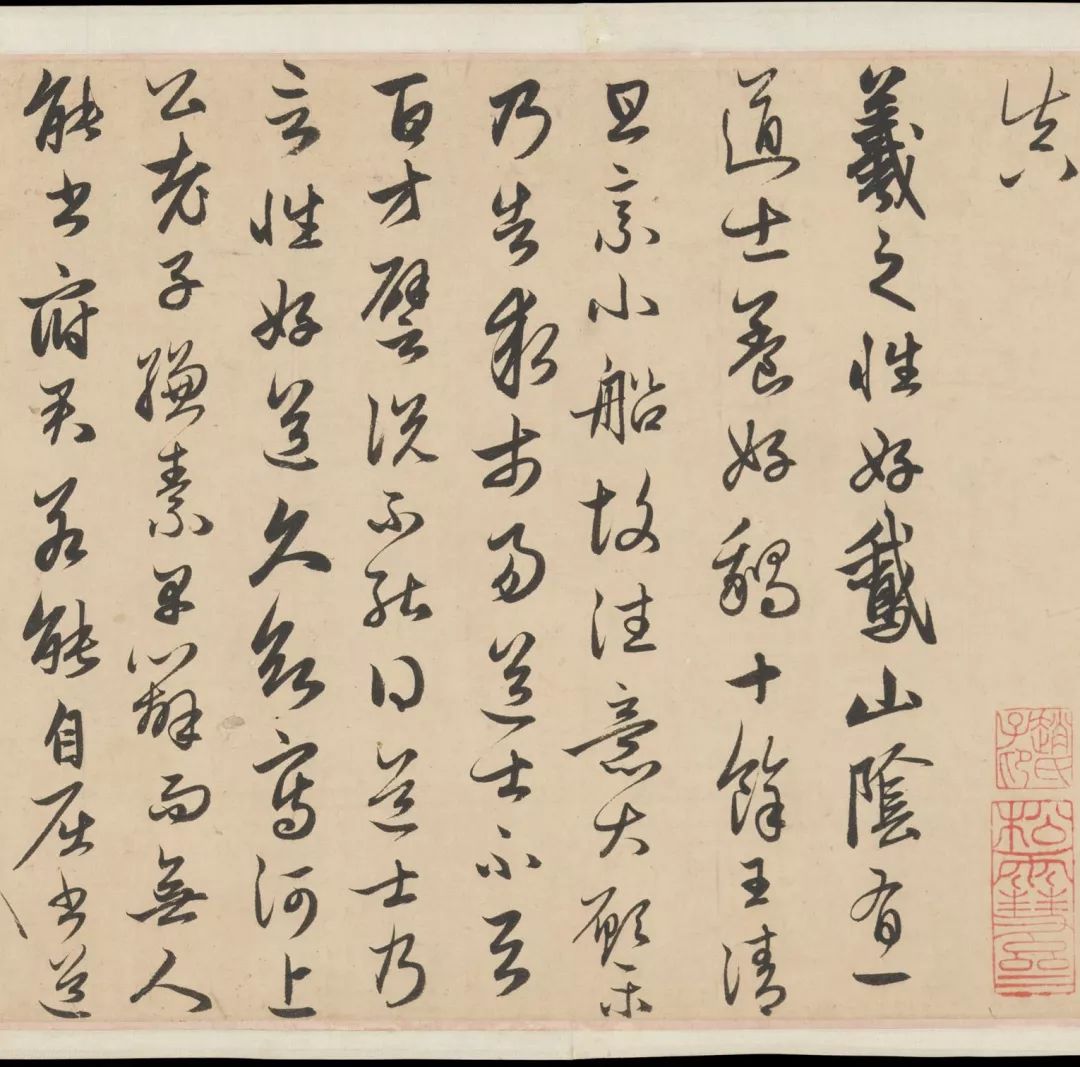 真八
羲之性好鵞山陰有一
道士養好鵝十餘王清
旦乘小船故往意大願樂
乃告求市易道士不与
百方譬說不能得道士乃
言性好道久欲寫河上
公老子縑素早辦而無人
能書府君若能自屈書道
趙氏子印
松雪齋